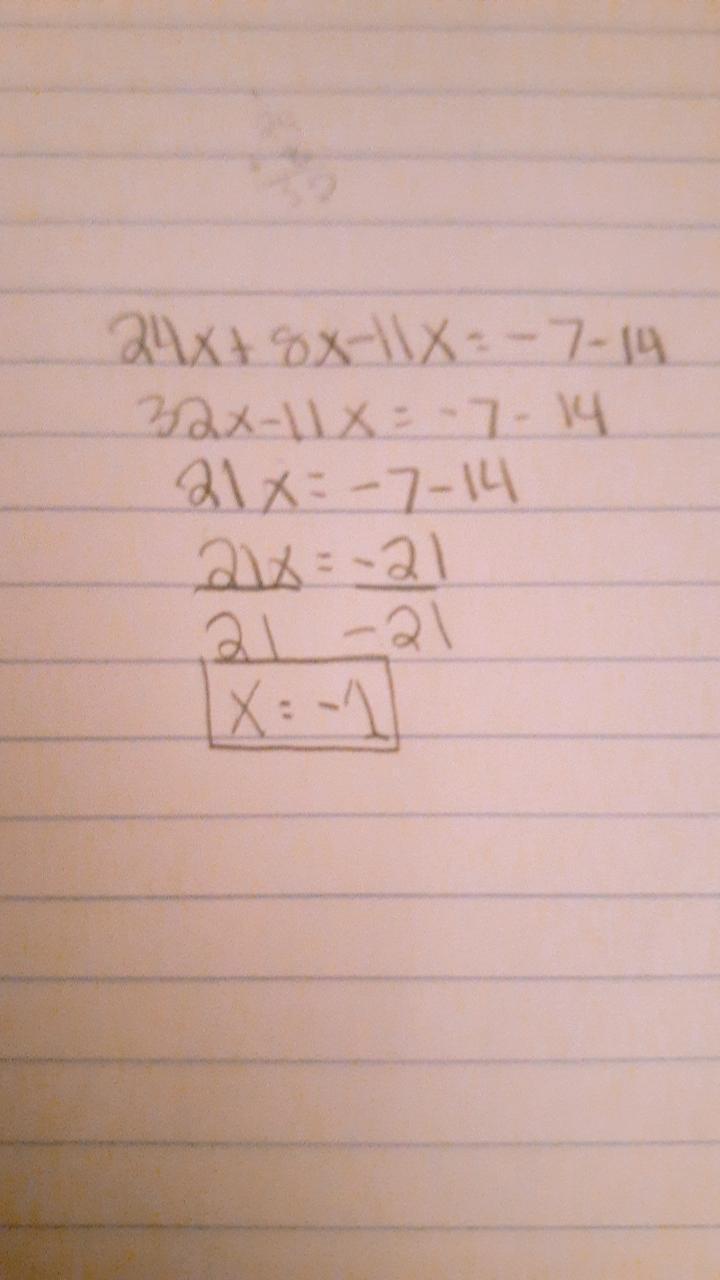 24x+8x-11x=-7-14
32x-11x=-7-14
21x=-7-14
21x=-21
21 -21
x=-1